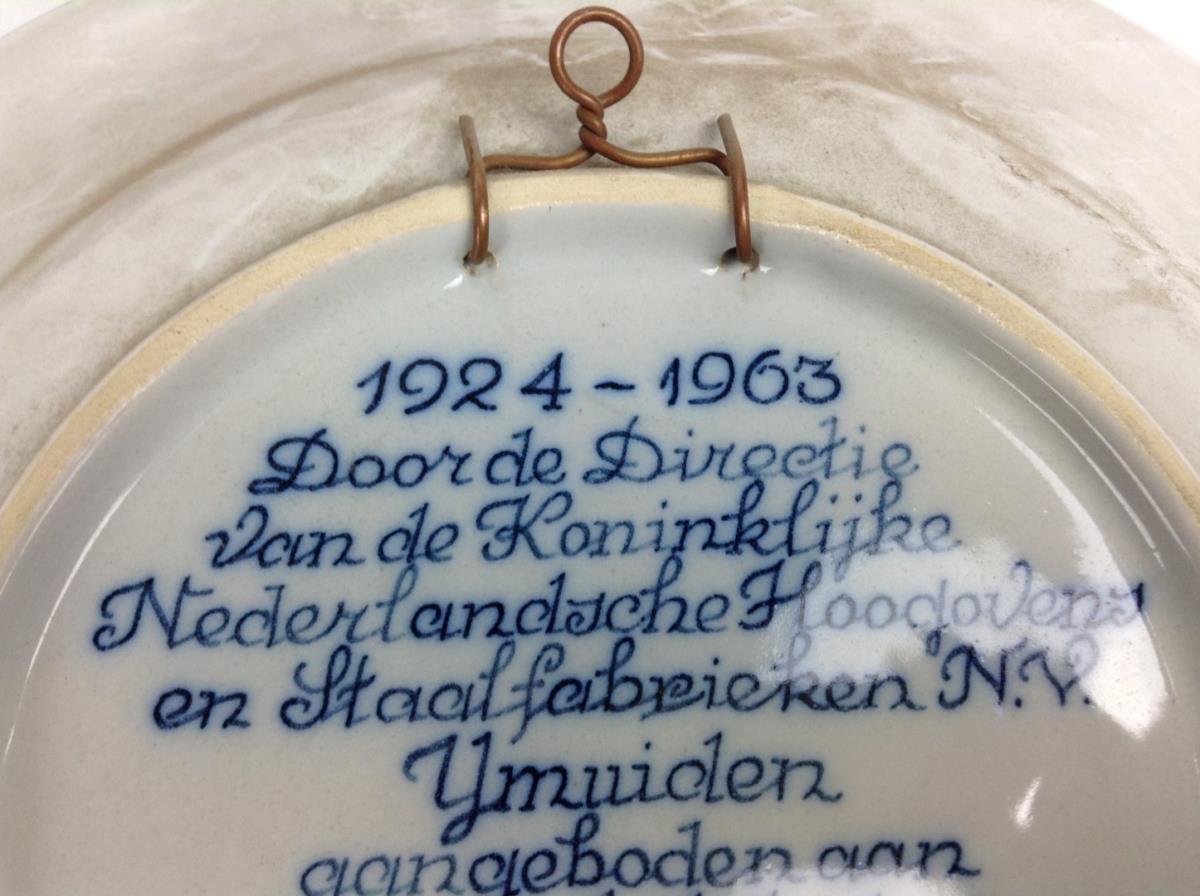 1924 - 1963
Door de Directie
van de Koninklijke
Nederlandsche Hoogovens
en Staalfabrieken N.V.
IJmuiden
aangeboden aan